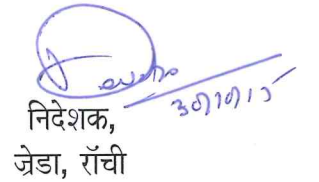 30/10/15
निदेशक,
ज्रेडा, रॉची